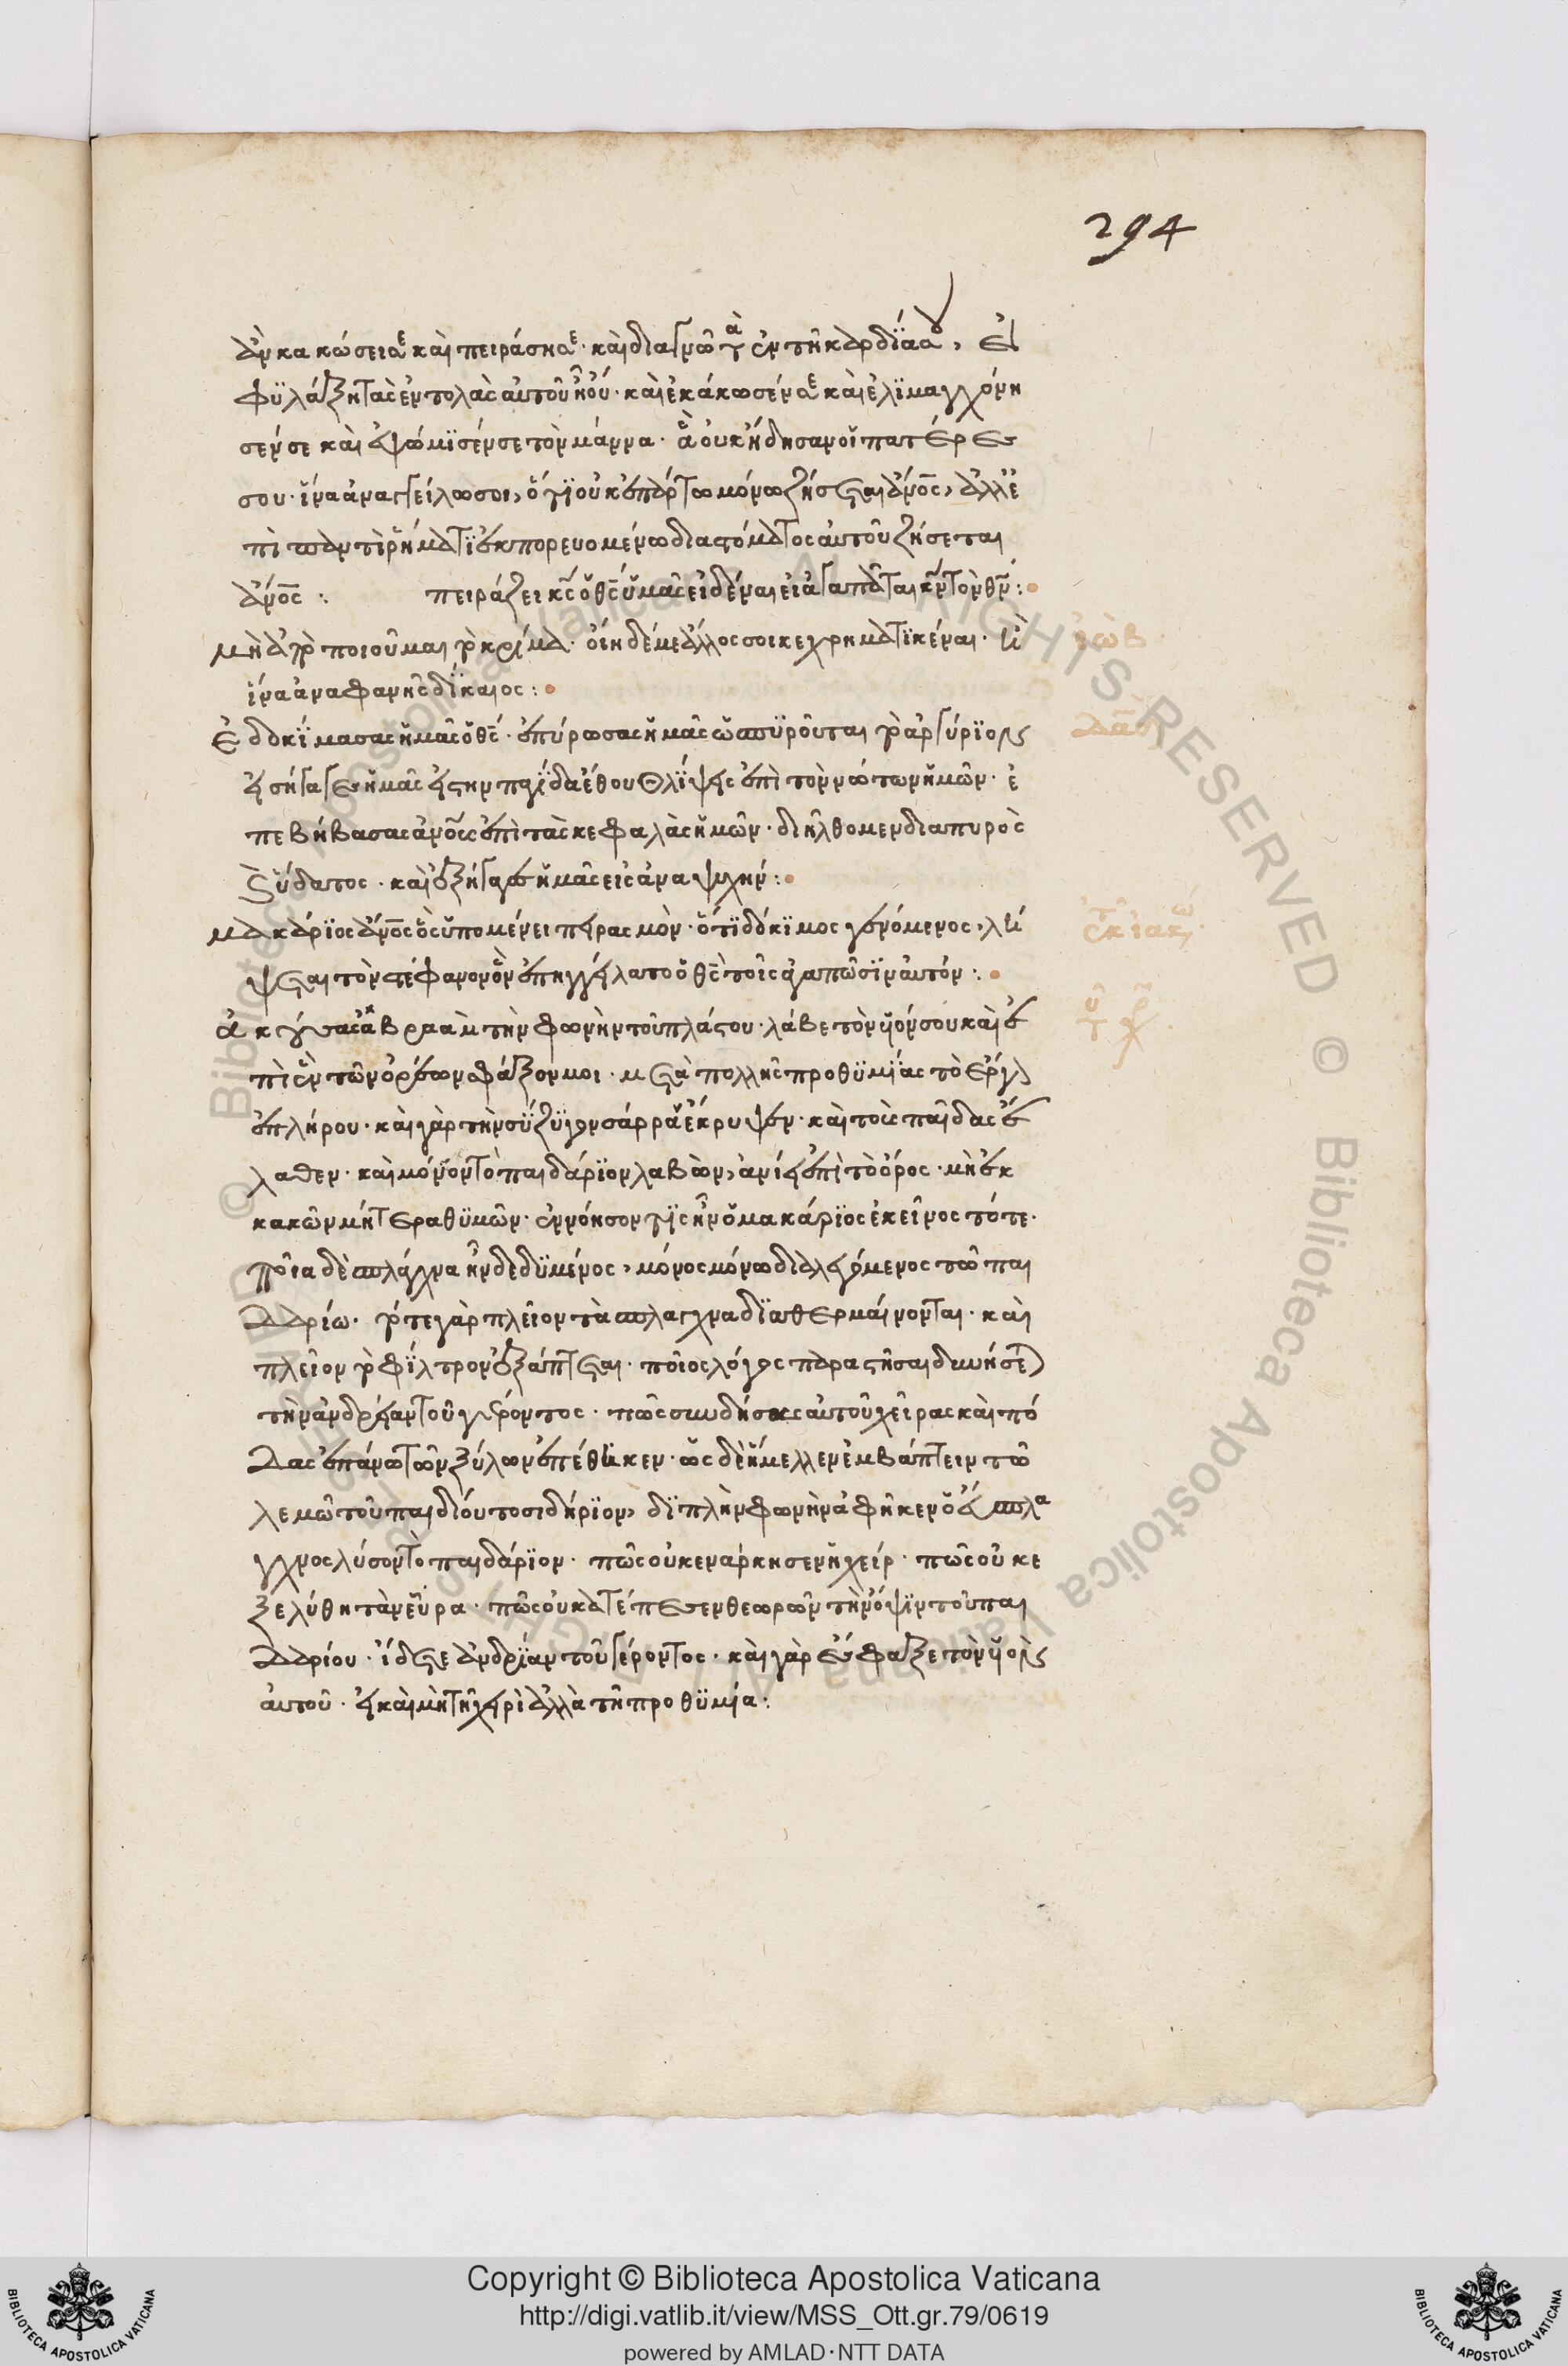 294
ἂν κακώσει σε καὶ πειράση σε· καὶ διαγνῶ τὰ ἐν τῆ καρδΐα σου, εἰ
φϋλάξη τὰς ἐντολὰς αὐτοῦ ἢ οὔ· καὶ ἐκάκωσέν σε καὶ ἐλϊμαγχόνη
σέν σε καὶ ἐψώμϊσέν σε τὸ μάννα· ὃ οὐκ ἤδησαν οἱ πατέρες
σου· ἵνα ἀναγγείλω σοι, ὅτϊ οὐκ ἐπ' ἄρτω μόνω ζήσεται ἄνος, ἀλλ' ἐ
πὶ παντὶ ῥήματϊ ἐκπορευομένω δια στόματος αὐτοῦ ζήσεται
ἄνος : πειράζει κς ὁ θς ὑμᾶς εἰδέναι εἰ ἀγαπᾶται κν τὸν θν :
μὴ ἀποποιοῦ μαι τὸ κρίμα· οἴη δέ με ἄλλος σοι κεχρηματϊκέναι· ἢ
ἵνα ἀναφανῆς δΐκαιος :
ἰώβ
Ἐδοκΐμασας ἡμᾶς ὁ θς· ἐπύρωσας ἡμᾶς ὡς πϋροῦται τὸ ἀργύρϊον
εἰσήγαγες ἡμᾶς εἰς τὴν παγΐδα ἔθου θλΐψεις ἐπὶ τὸν νώτων ἡμῶν· ἐ
πεβήβασας ἀνους ἐπὶ τὰς κεφαλὰς ἡμῶν· διήλθομεν δια πυρὸς
καὶ ὕδατος· καὶ ἐξήγαγες ἡμᾶς εἰς ἀναψυχήν :
δαδ
μακάρϊος ἄνος ὃς ὑπομένει πειρασμὸν· ὅτϊ δόκϊμος γενόμενος, λή
ψεται τὸν στέφανον ὃν ἐπηγγείλατο ὁ θς τοῖς ἀγαπῶσϊν αὐτόν :
Ἀκούσας ἀβραὰμ τὴν φωνὴν τοῦ πλάστου· λάβε τὸν υἱόν σου καὶ ἐ
πὶ ἓν τῶν ὀρέων σφάξον μοι· μετὰ πολλῆς προθϋμΐας τὸ ἔργον
ἐπλήρου· καὶ γὰρ τὴν σύζϋγον σάρρα ἔκρυψεν· καὶ τοὺς παῖδας ἔ
λαθεν· καὶ μόνον τὸ παιδάρϊον λαβὼν, ἀνίει ἐπὶ τὸ ὄρος· μὴ ἐκ
κακῶν μήτε ραθϋμῶν· ἐννόησον τΐς ἦν ὁ μακάρϊος ἐκεῖνος τότε·
ποῖα δὲ σπλάγχνα ἦν δεδϋμένος, μόνος μόνω διαλεγόμενος τῶ παι
δαρίω· τότε γὰρ πλεῖον τὰ σπλαγχνα δϊαθερμαίνονται· καὶ
πλεῖον τὸ φΐλτρον ἐξάπτεται· ποῖος λόγος παραστῆσαι δυνήσεται
τὴν ἀνδρείαν τοῦ γέροντος· πῶς συνδήσας αὐτοῦ χεῖρας καὶ πό
δας ἐπάνω τῶν ξύλων ἐπέθηκεν· ὡς δὲ ἤμελλεν ἐμβάπτειν τῶ
λεμῶ τοῦ παιδίου το σιδήρϊον, δϊπλὴν φωνὴν ἀφῆκεν ὁ εὔσπλα
γχνος λύσον τὸ παιδάρϊον· πῶς οὐκ ἐνάρκησεν ἡ χείρ· πῶς οὐκ ἐ
ξελύθη τὰ νεῦρα· πῶς οὐ κατέπεσεν θεωρῶν τὴν ὄψϊν τοῦ παι
δαρίου· ἴδετε ἀνδρΐαν τοῦ γέροντος· καὶ γὰρ ἔσφαξε τὸν υἱὸν
αὐτοῦ· εἰ καὶ μὴ τῆ χειρὶ ἀλλὰ τῆ προθϋμία :
Copyright © Biblioteca Apostolica Vaticana
http://digi.vatlib.it/view/MSS_Ott.gr.79/0619
powered by AMLAD·NTT DATA
BIBLIOTECA APOSTOLICA VATICANA
BIBLIOTECA APOSTOLICA VATICANA